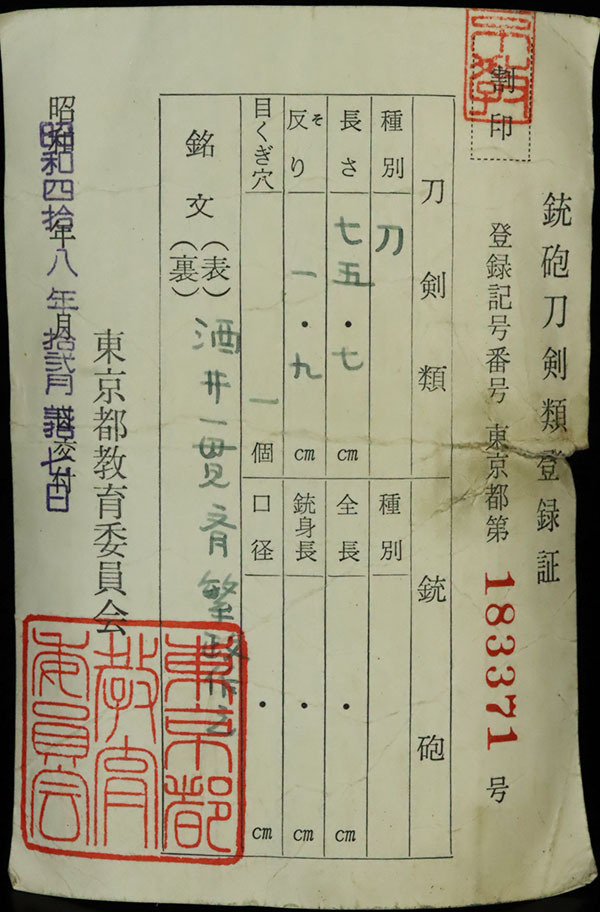 割印
銃砲刀剣類登録証
登録記号番号 東京都第 183371 号
刀剣類
種別 刀
長さ 七五・七 cm
反り そ 一・九 cm
目くぎ穴 一 個
銘文 (表)(裏) 酒井一貫斉繁政作之
銃砲
種別
全長 ・ cm
銃身長 ・ cm
口径 ・ cm
昭和四拾八年拾弐月 七日
東京都教育委員会
東京都教育委員会